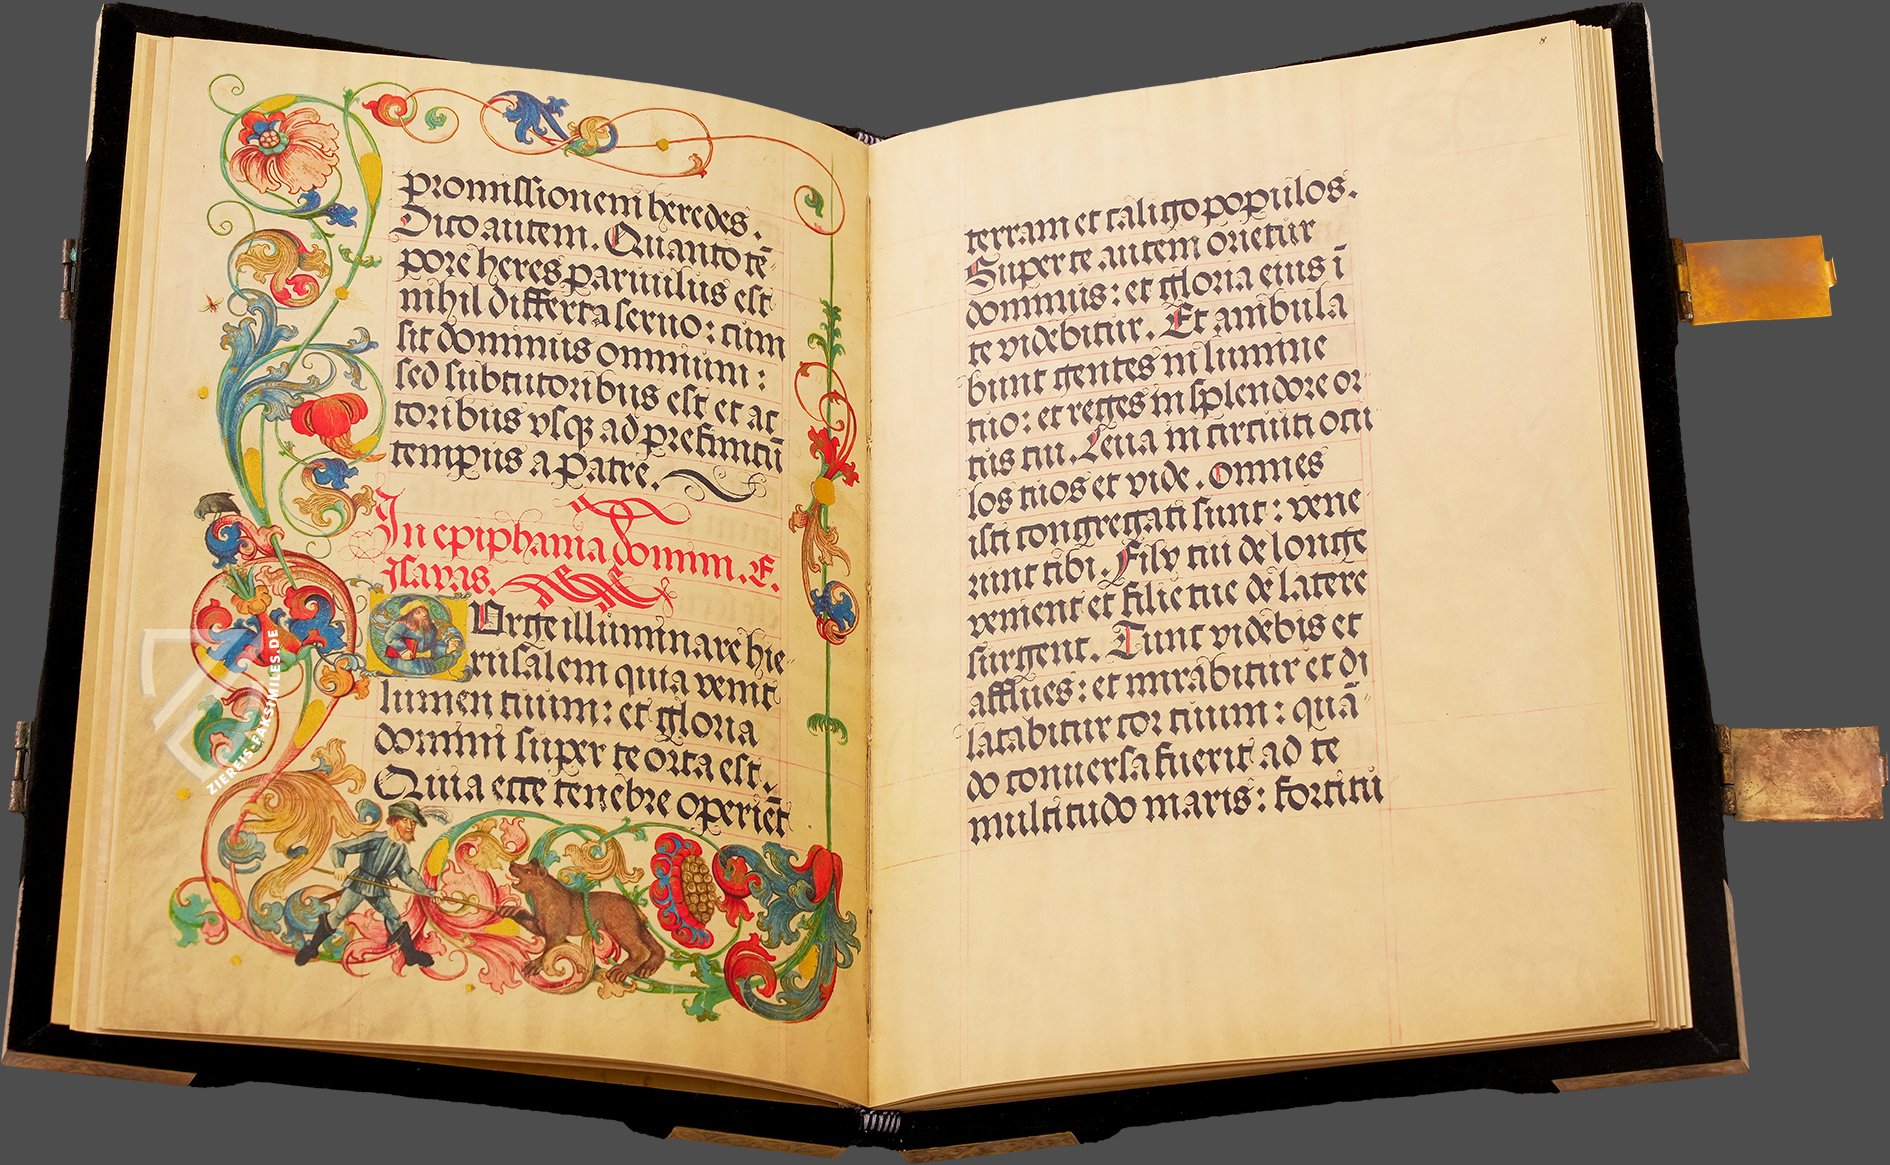 promissionem heredes.
Dico autem. Quanto tē
pore heres paruulus est
nihil differt a seruo: cum
sit dominus omnium:
sed subtutoribus est et ac
toribus vsq; ad prefinitū
tempus a patre.
In epiphania domini. E.
isayas.
Surge illuminare hie
rusalem quia venit
lumen tuum: et gloria
domini super te orta est.
Quia ecce tenebre operiēt
8
terram et caligo populos.
Super te autem orietur
dominus: et gloria eius ī
te videbitur. Et ambula
bunt gentes in lumine
tuo: et reges in splendore or
tus tui. Leua in circuitu ocu
los tuos et vide. Omnes
isti congregati sunt: vene
runt tibi. Filij tui de longe
venient et filie tue de latere
surgent. Tunc videbis et
afflues: et mirabitur et di
latabitur cor tuum: quā
do conuersa fuerit ad te
multitudo maris: fortitu
ZIEREIS-FAKSIMILES.DE